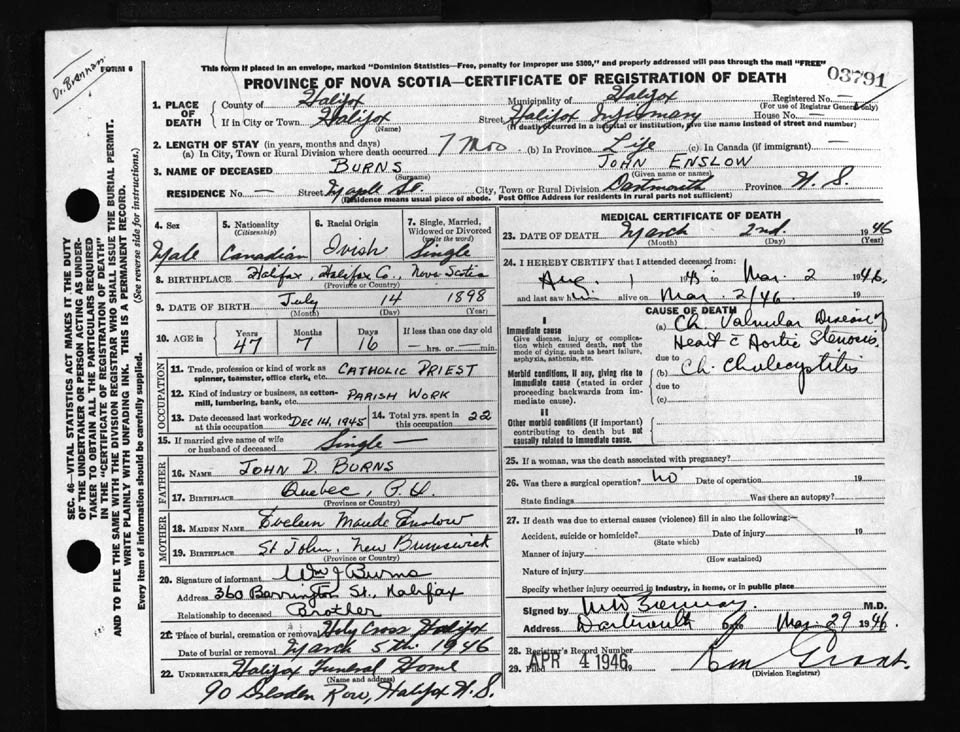 Dr. Brennan
FORM 6
This form if placed in an envelope, marked "Dominion Statistics—Free, penalty for improper use $300," and properly addressed will pass through the mail "FREE"
PROVINCE OF NOVA SCOTIA—CERTIFICATE OF REGISTRATION OF DEATH
03791
1. PLACE OF DEATH
County of Halifax Municipality of Halifax Registered No. —
(For use of Registrar General only)
If in City or Town Halifax (Name) Street Halifax Infirmary House No. —
(If death occurred in a hospital or institution, give the name instead of street and number)
2. LENGTH OF STAY (in years, months and days)
(a) In City, Town or Rural Division where death occurred 7 Mos (b) In Province Life (c) In Canada (if immigrant) —
3. NAME OF DECEASED BURNS (Surname) JOHN ENSLOW (Given name or names)
RESIDENCE No. — Street Maple St. City, Town or Rural Division Dartmouth Province N. S.
(Residence means usual place of abode. Post Office Address for residents in rural parts not sufficient)
4. Sex Male
5. Nationality (Citizenship) Canadian
6. Racial Origin Irish
7. Single, Married, Widowed or Divorced (write the word) Single
8. BIRTHPLACE Halifax, Halifax Co., Nova Scotia
(Province or Country)
9. DATE OF BIRTH July 14 1898
(Month) (Day) (Year)
10. AGE in Years 47 Months 7 Days 16 If less than one day old — hrs. or — min.
OCCUPATION
11. Trade, profession or kind of work as spinner, teamster, office clerk, etc. CATHOLIC PRIEST
12. Kind of industry or business, as cotton-mill, lumbering, bank, etc. PARISH WORK
13. Date deceased last worked at this occupation DEC 14, 1945
14. Total yrs. spent in this occupation 22
15. If married give name of wife or husband of deceased Single —
FATHER
16. NAME JOHN D. BURNS
17. BIRTHPLACE Quebec, P. Q.
(Province or Country)
MOTHER
18. MAIDEN NAME Eveleen Maude Enslow
19. BIRTHPLACE St John, New Brunswick
(Province or Country)
20. Signature of informant Wm J Burns
Address 360 Barrington St., Halifax
Relationship to deceased Brother
21. Place of burial, cremation or removal Holy Cross Halifax
Date of burial or removal March 5th. 1946
22. UNDERTAKER Halifax Funeral Home
(Name and address)
90 Dresden Row, Halifax N. S.
MEDICAL CERTIFICATE OF DEATH
23. DATE OF DEATH March 2nd. 1946
(Month) (Day) (Year)
24. I HEREBY CERTIFY that I attended deceased from:
Aug. 1 1945 to Mar. 2 1946.
and last saw him alive on Mar. 2/46. 19
CAUSE OF DEATH
I
Immediate cause
Give disease, injury or complication which caused death, not the mode of dying, such as heart failure, asphyxia, asthenia, etc.
(a) Ch. Valvular Disease of
Heart c Aortic Stenosis.
due to
Morbid conditions, if any, giving rise to immediate cause (stated in order proceeding backwards from immediate cause).
(b) Ch. Cholecystitis
due to
(c)
II
Other morbid conditions (if important) contributing to death but not causally related to immediate cause.
25. If a woman, was the death associated with pregnancy?
26. Was there a surgical operation? No Date of operation 19
State findings Was there an autopsy?
27. If death was due to external causes (violence) fill in also the following:—
Accident, suicide or homicide? Date of injury 19
(State which)
Manner of injury
(How sustained)
Nature of injury
Specify whether injury occurred in industry, in home, or in public place
Signed by M.D.
Address Dartmouth Date Mar. 29 1946.
28. Registrar's Record Number
29. Filed APR 4 1946
(Division Registrar)
SEC. 46—VITAL STATISTICS ACT MAKES IT THE DUTY
OF THE UNDERTAKER OR PERSON ACTING AS UNDER-
TAKER TO OBTAIN ALL THE PARTICULARS REQUIRED
IN THE "CERTIFICATE OF REGISTRATION OF DEATH"
AND TO FILE THE SAME WITH THE DIVISION REGISTRAR WHO SHALL ISSUE THE BURIAL PERMIT.
WRITE PLAINLY WITH UNFADING INK. THIS IS A PERMANENT RECORD.
Every item of information should be carefully supplied. (See reverse side for instructions.)